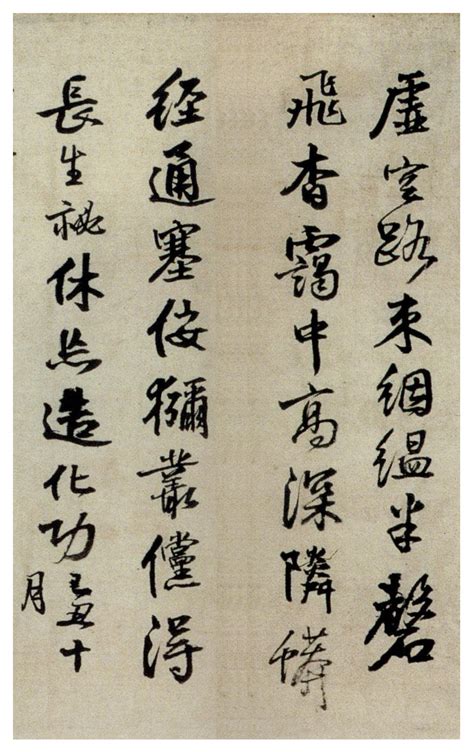 虛空路束絪縕半磬
飛杳靄中高深隣蟒
經通塞佞獼叢儻得
長生祕休造化功己丑十
月